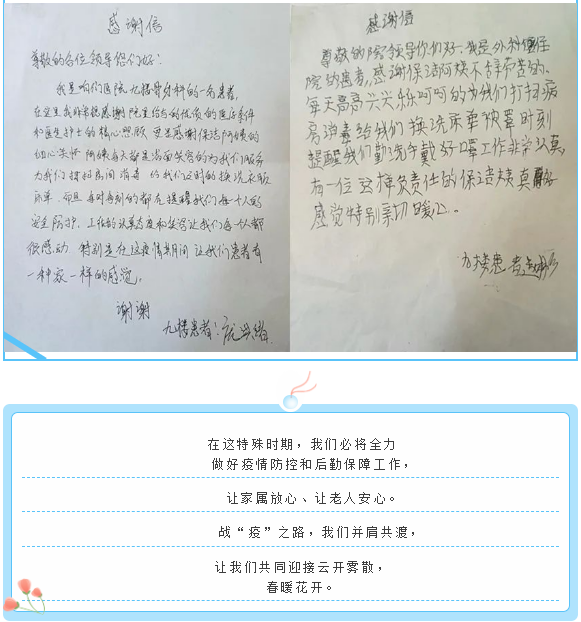 感谢信
尊敬的各位领导你们好：
我是咱们医院九楼骨外科的一名患者，
在这里我非常感谢院里给予的优质的医疗条件
和医生护士的精心照顾 更是感谢保洁阿姨的
细心关怀 阿姨每天都是满面笑容的为我们服务
为我们打扫房间消毒 给我们定时的换洗衣服
床单 而且每时每刻的都在提醒我们每一个人的
安全防护 工作的认真态度和笑容让我们每一个人都
很感动 特别是在这疫情期间 让我们患者有
一种家一样的感觉。
谢谢
九楼患者：
感谢信
尊敬的院领导你们好、我是外科住
院的患者，感谢保洁阿姨不辞劳苦的、
每天高高兴兴乐呵呵的为我们打扫病
房消毒给我们换洗床单被罩时刻
提醒我们勤洗手戴好口罩工作非常认真
有一位这样负责任的保洁姨真
感觉特别亲切暖心。
九楼患
在这特殊时期，我们必将全力
做好疫情防控和后勤保障工作，
让家属放心、让老人安心。
战“疫”之路，我们并肩共渡，
让我们共同迎接云开雾散，
春暖花开。